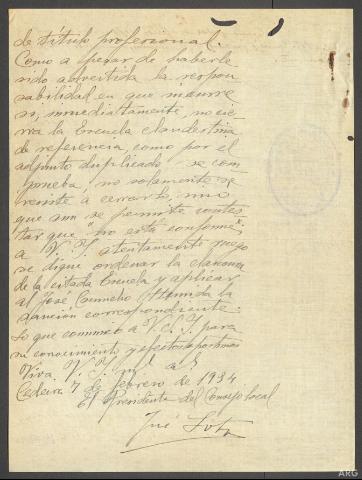 de título profesional.
Como a pesar de haberle
sido advertida la respon
sabilidad en que incurre
si, inmediatamente, no cie
rra la Escuela clandestina
de referencia, como por el
adjunto duplicado se com
prueba, no solamente se
resiste a cerrarla, sino
que aun se permite contes
tar que "no está conforme",
a V. I. atentamente ruego
se digne ordenar la clausura
de la citada Escuela y aplicar
al José la
sanción correspondiente.
Lo que comunico a V. I. para
su conocimiento y efectos oportunos
Viva V. I. m. a.
Cedeira 7 de febrero de 1934
El Presidente del Consejo local
José
ARG